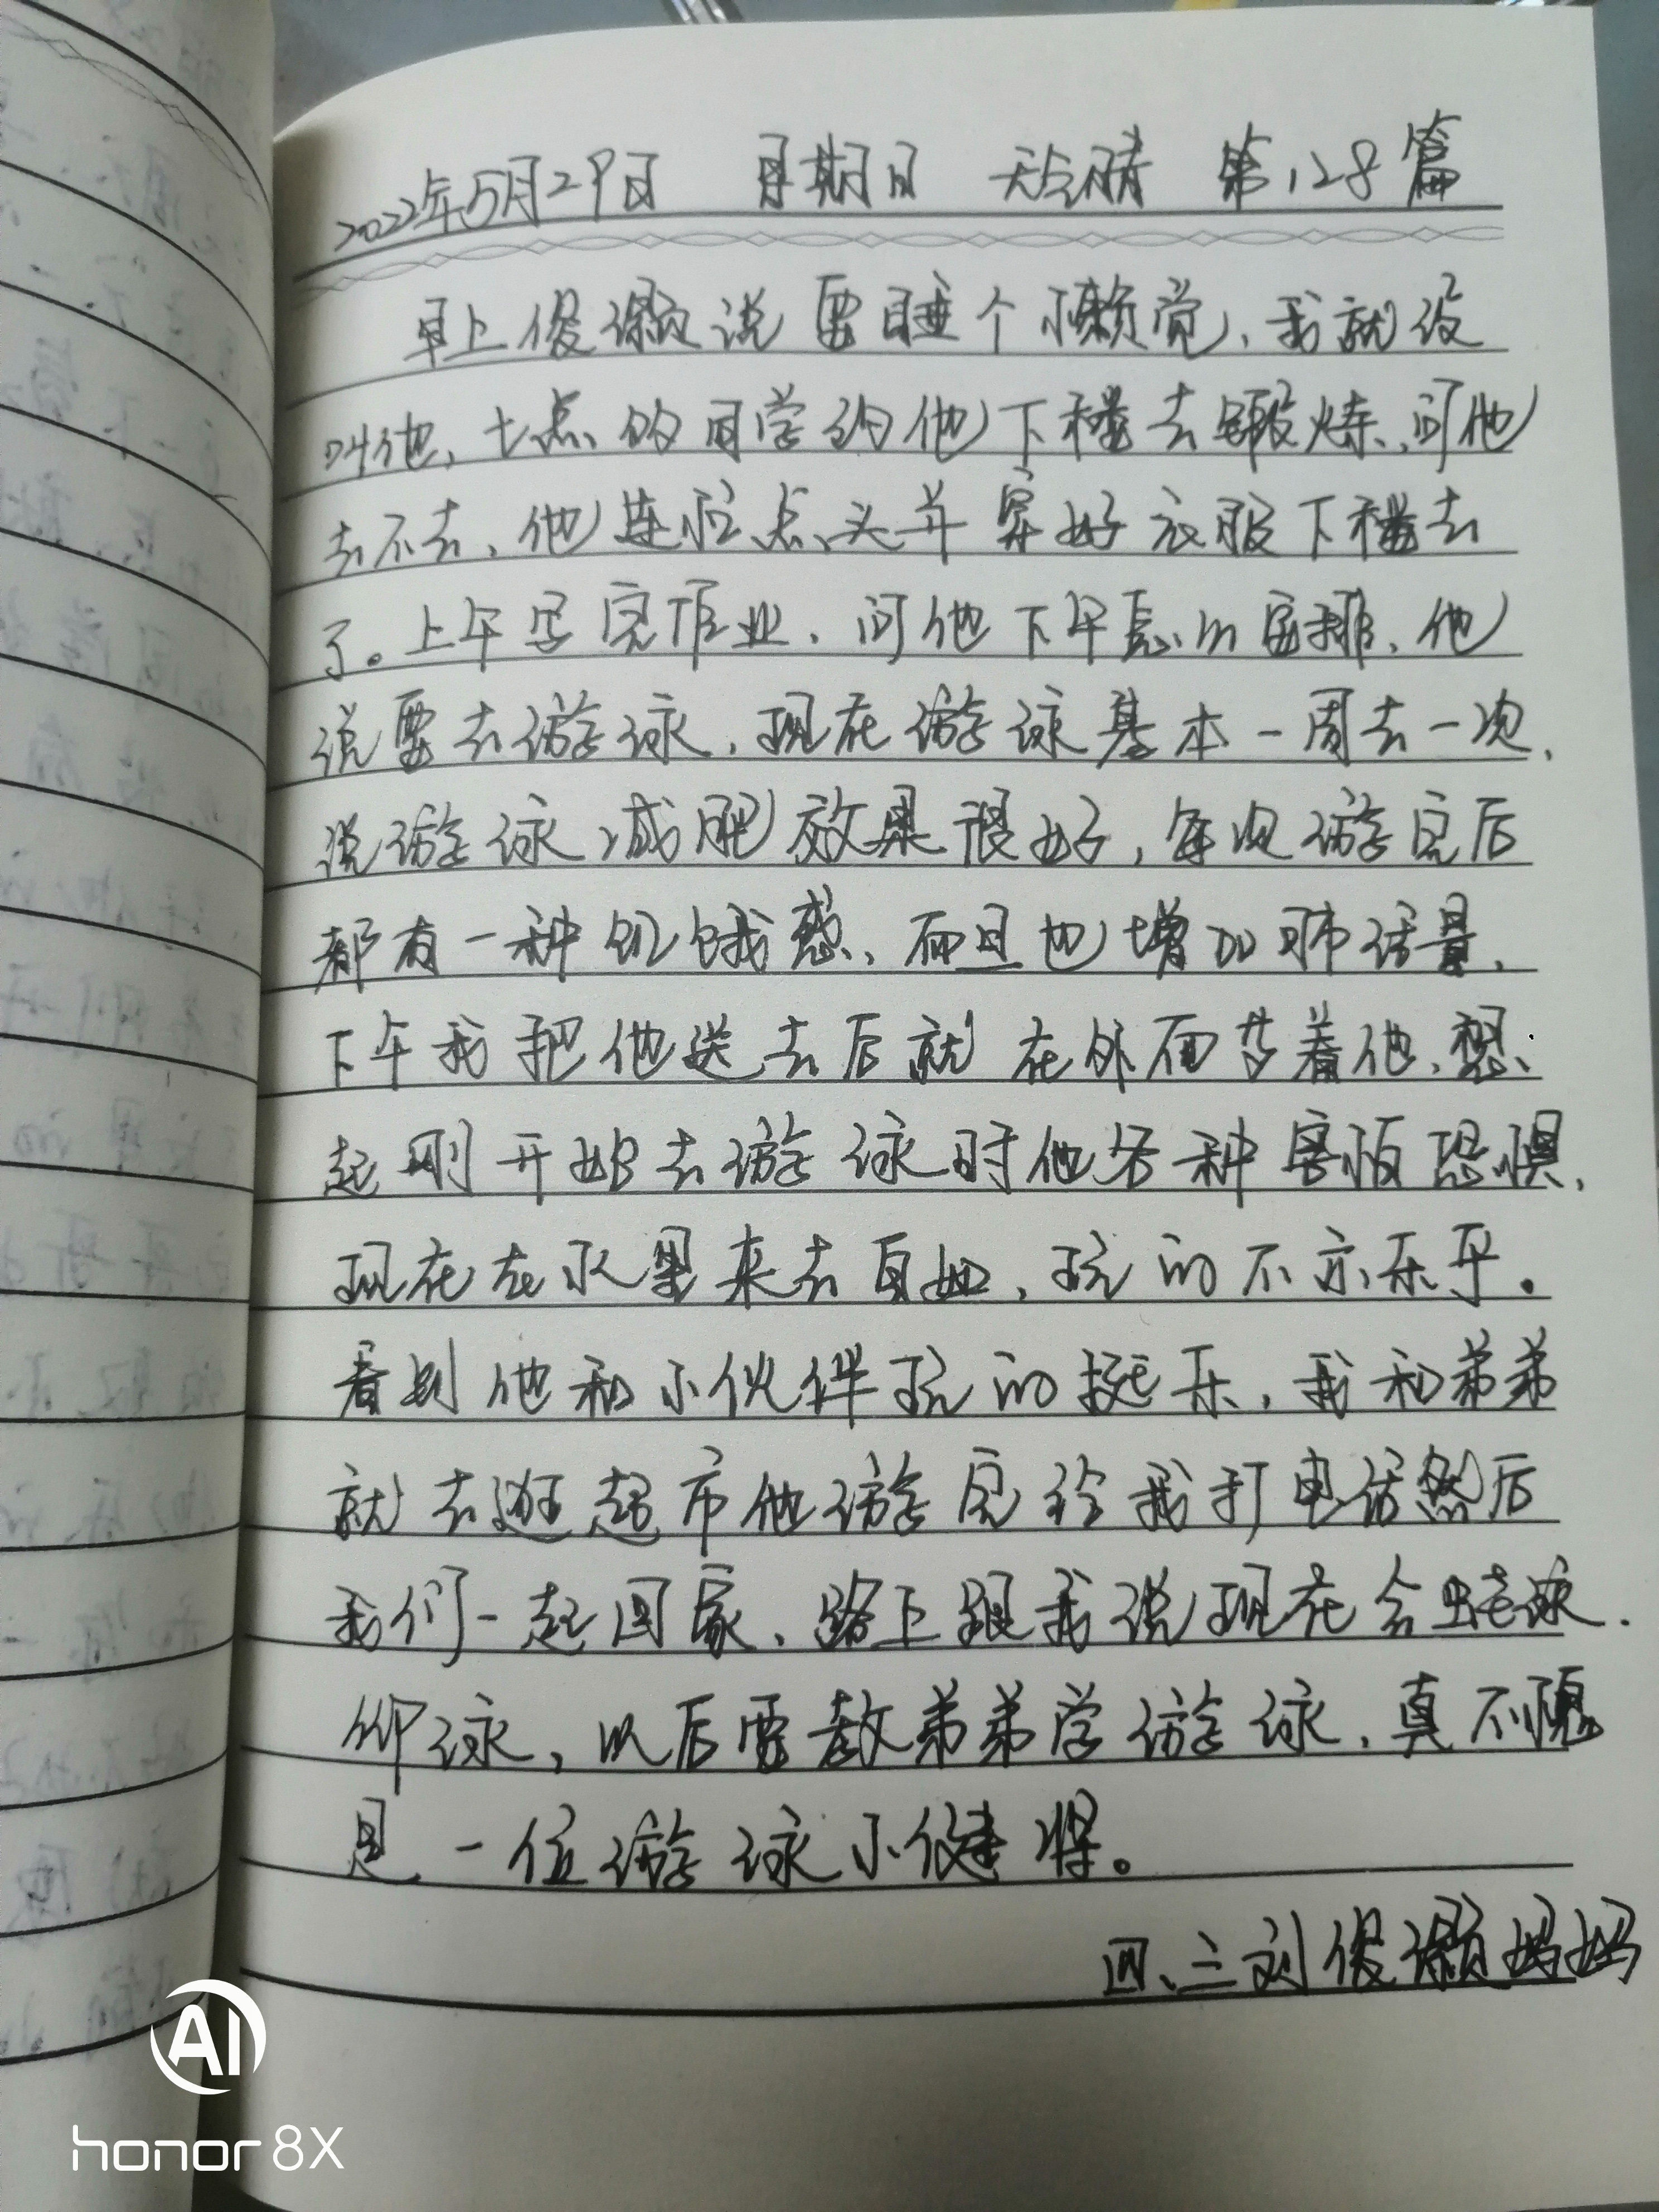 2022年5月29日 星期日 天气晴 第128篇
早上俊灏说要睡个懒觉，我就没
叫他，七点的同学约他下楼去锻炼，问他
去不去，他连忙点头并穿好衣服下楼去
了。上午写完作业，问他下午怎么安排，他
说要去游泳，现在游泳基本一周去一次，
说游泳减肥效果很好，每次游完后
都有一种饥饿感，而且也增加肺活量，
下午我把他送去后就在外面等着他，想
起刚开始去游泳时他各种害怕恐惧，
现在在水里来去自如，玩的不亦乐乎。
看到他和小伙伴玩的挺乐，我和弟弟
就去逛超市他游完给我打电话然后
我们一起回家，路上跟我说现在会蛙泳．
仰泳，以后要教弟弟学游泳，真不愧
是一位游泳小健将。
四、三刘俊灏妈妈
AI
honor 8X